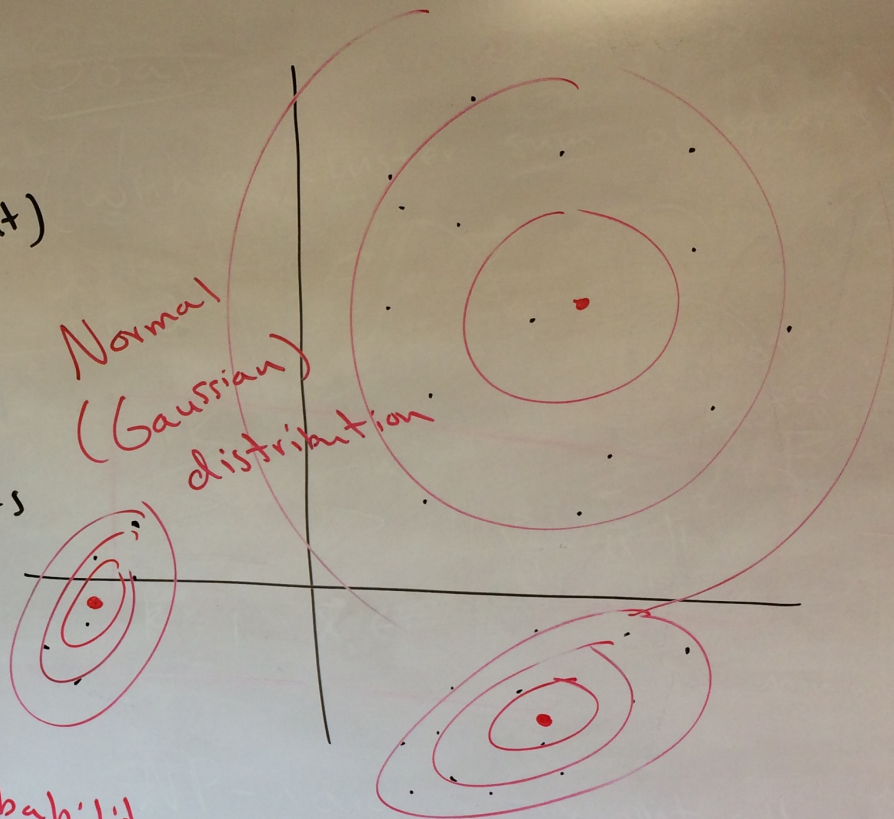 t)
Normal
(Gaussian)
distribution
s
babilit